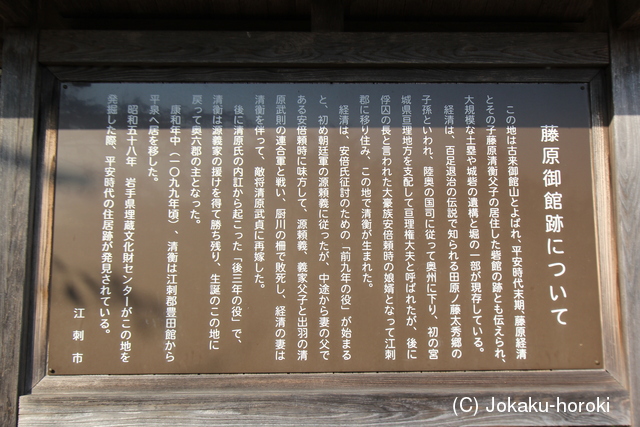 藤原御館跡について
この地は古来御館山とよばれ、平安時代末期、藤原経清
とその子藤原清衡父子の居住した砦館の跡とも伝えられ、
大規模な土塁や城砦の遺構と堀の一部が現存している。
経清は、百足退治の伝説で知られる田原ノ藤太秀郷の
子孫といわれ、陸奥の国司に従って奥州に下り、初の宮
城県亘理地方を支配して亘理権大夫と呼ばれたが、後に
俘囚の長と言われた大豪族安倍頼時の娘婿となって江刺
郡に移り住み、この地で清衡が生まれた。
経清は、安倍氏征討のための「前九年の役」が始まる
と、初め朝廷軍の源頼義に従ったが、中途から妻の父で
ある安倍頼時に味方して、源頼義、義家父子と出羽の清
原武則の連合軍と戦い、厨川の柵で敗死し、経清の妻は
清衡を伴って、敵将清原武貞に再嫁した。
後に清原氏の内訂から起こった「後三年の役」で、
清衡は源義家の援けを得て勝ち残り、生誕のこの地に
戻って奥六郡の主となった。
康和年中（一〇九九年頃）、清衡は江刺郡豊田館から
平泉へ居を移した。
昭和五十八年　岩手県埋蔵文化財センターがこの地を
発掘した際、平安時代の住居跡が発見されている。
江刺市
(C) Jokaku-horoki